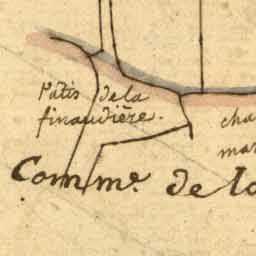 Patis de la
finaudière.
cha
mar
Comm.e de la